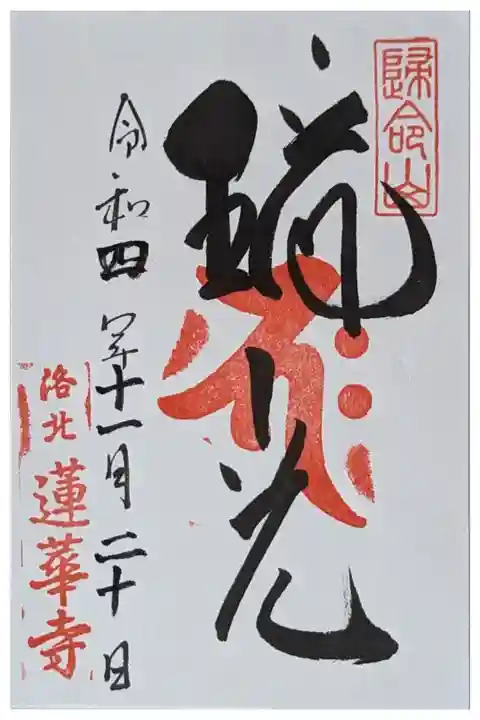 歸命山
瑞光
令和四年十一月二十日
洛北
蓮華寺